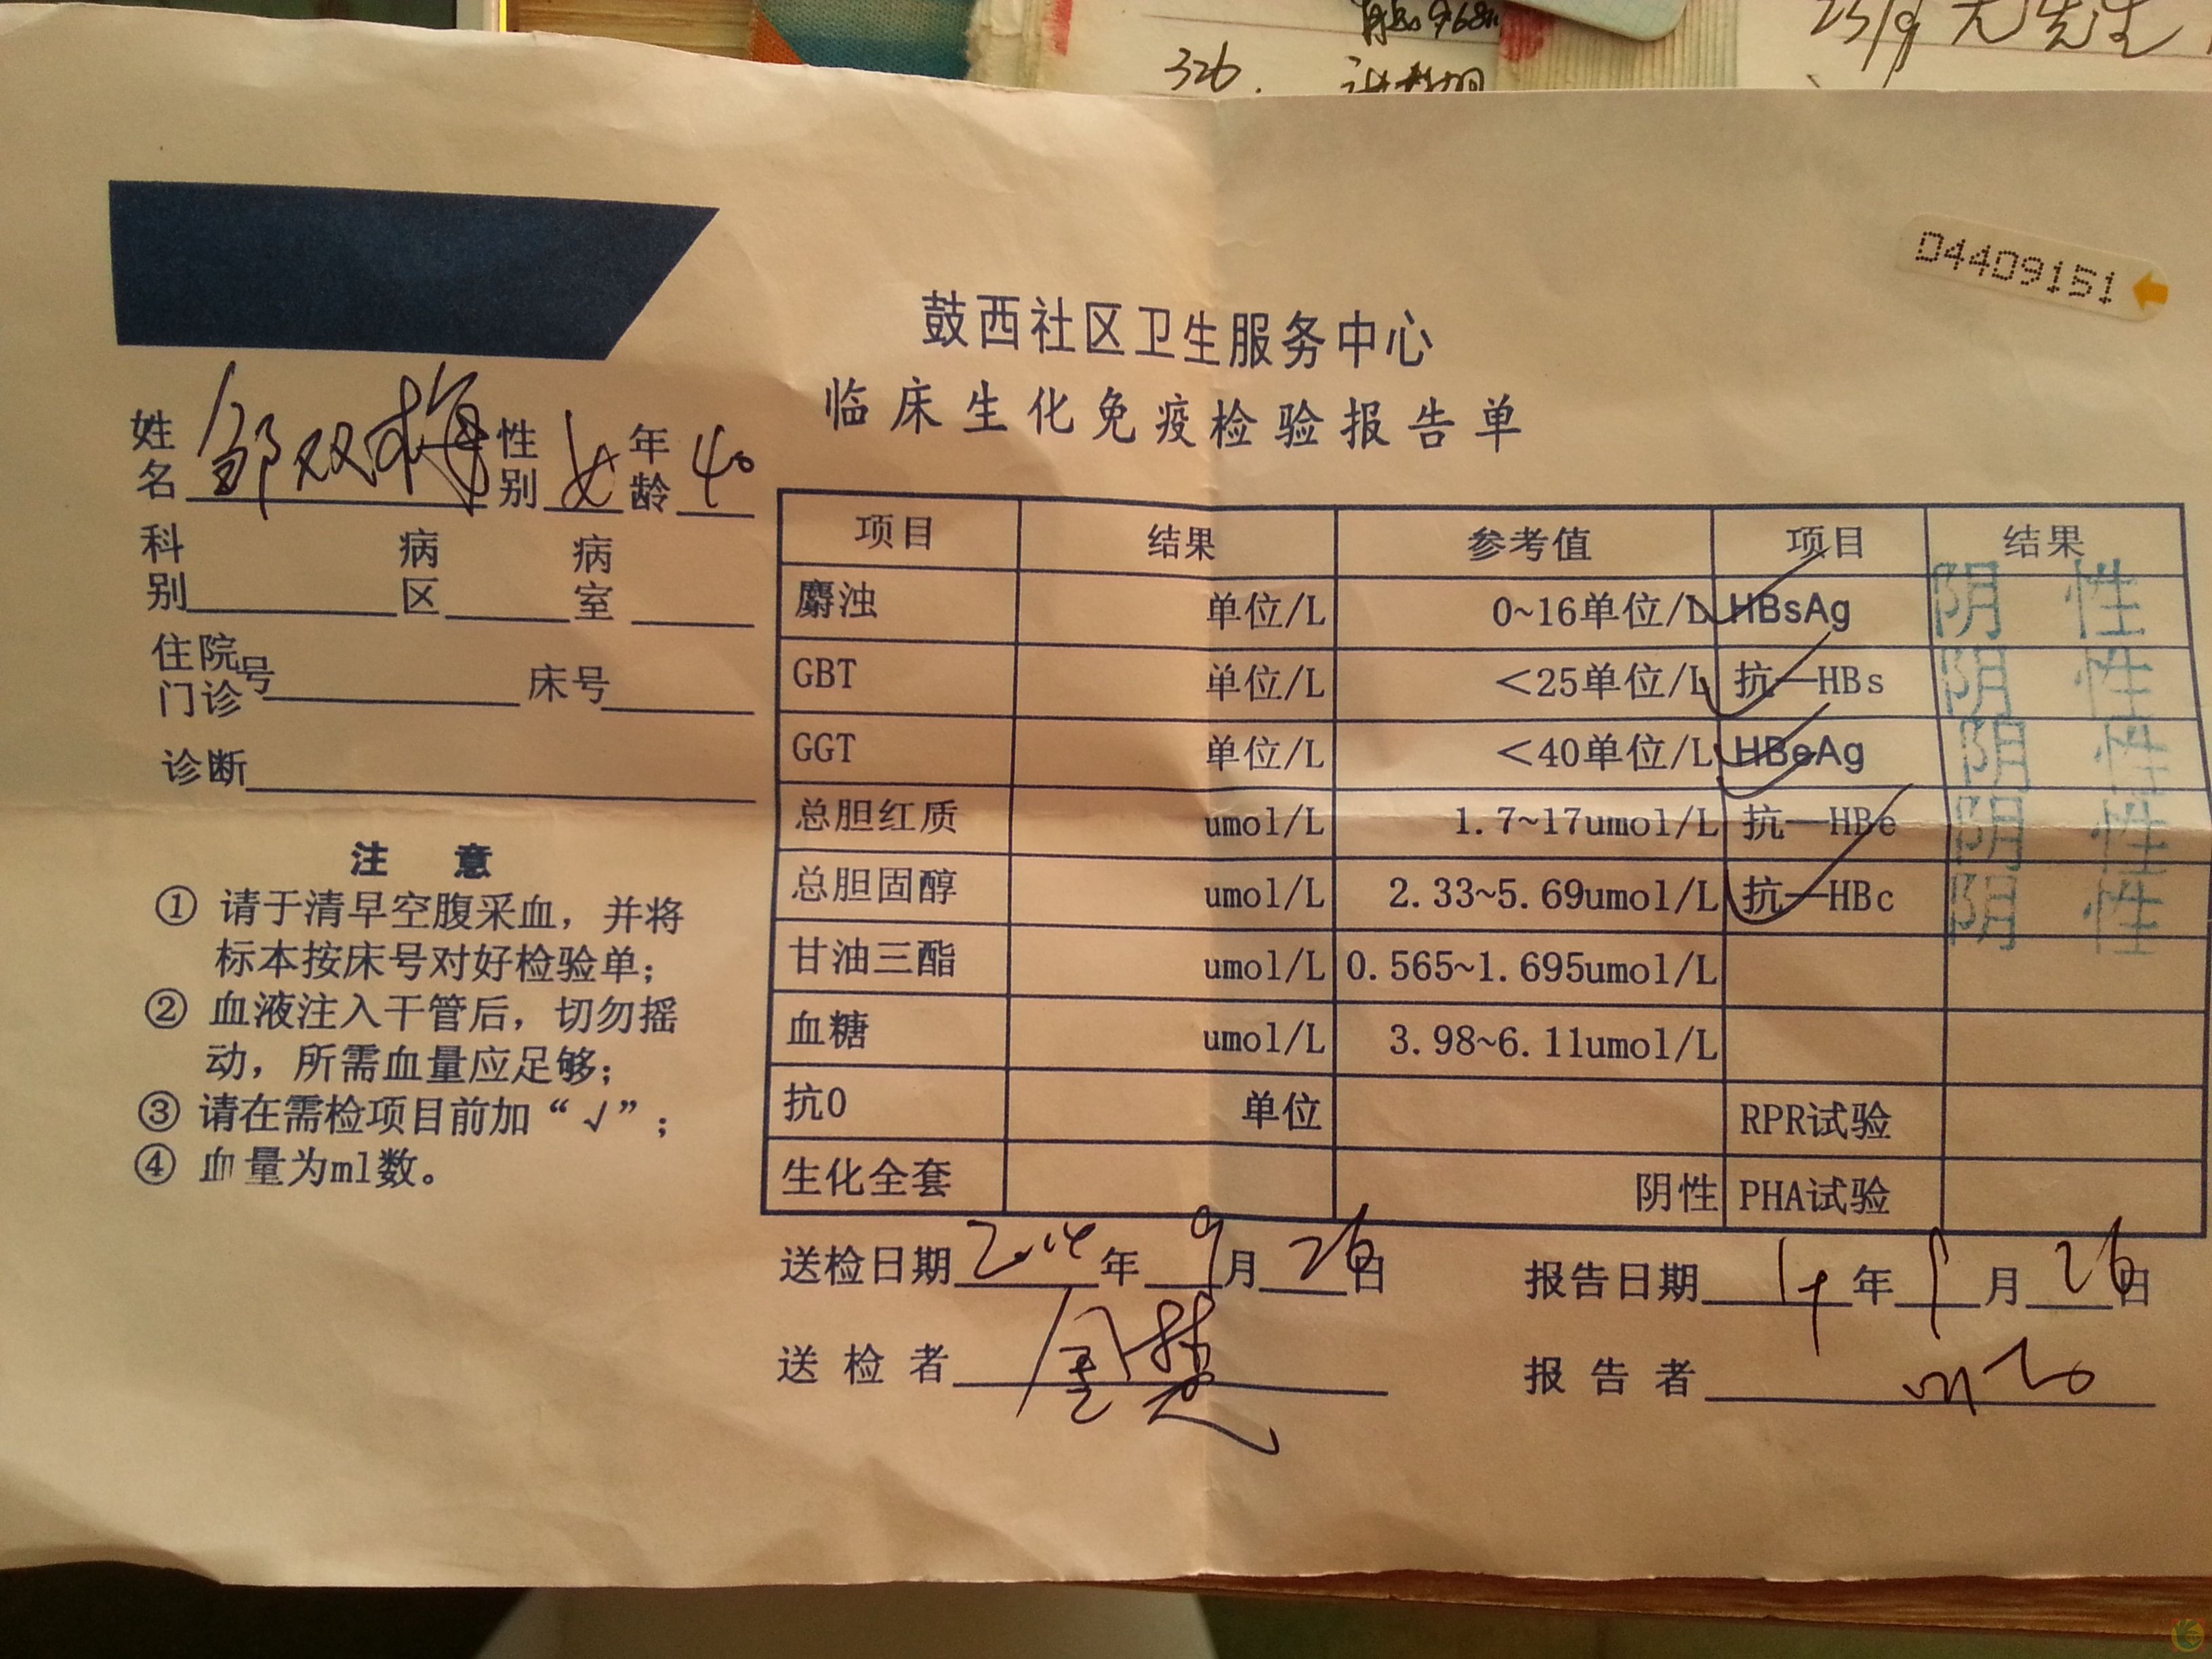 326.
04409151
鼓西社区卫生服务中心
临床生化免疫检验报告单
姓名 邹双梅 性别 女 年龄 40
科别 病区 病室
住院门诊号 床号
诊断
注 意
① 请于清早空腹采血，并将
标本按床号对好检验单；
② 血液注入干管后，切勿摇
动，所需血量应足够；
③ 请在需检项目前加“√”；
④ 血量为ml数。
项目 结果 参考值 项目 结果
麝浊 单位/L 0~16单位/L √ HBsAg 阴性
GBT 单位/L <25单位/L √ 抗—HBs 阴性
GGT 单位/L <40单位/L √ HBeAg 阴性
总胆红质 umol/L 1.7~17umol/L 抗—HBe 阴性
总胆固醇 umol/L 2.33~5.69umol/L √ 抗—HBc 阴性
甘油三酯 umol/L 0.565~1.695umol/L
血糖 umol/L 3.98~6.11umol/L
抗0 单位 RPR试验
生化全套 阴性 PHA试验
送检日期 2014 年 9 月 26 日 报告日期 14 年 9 月 26 日
送检者 报告者